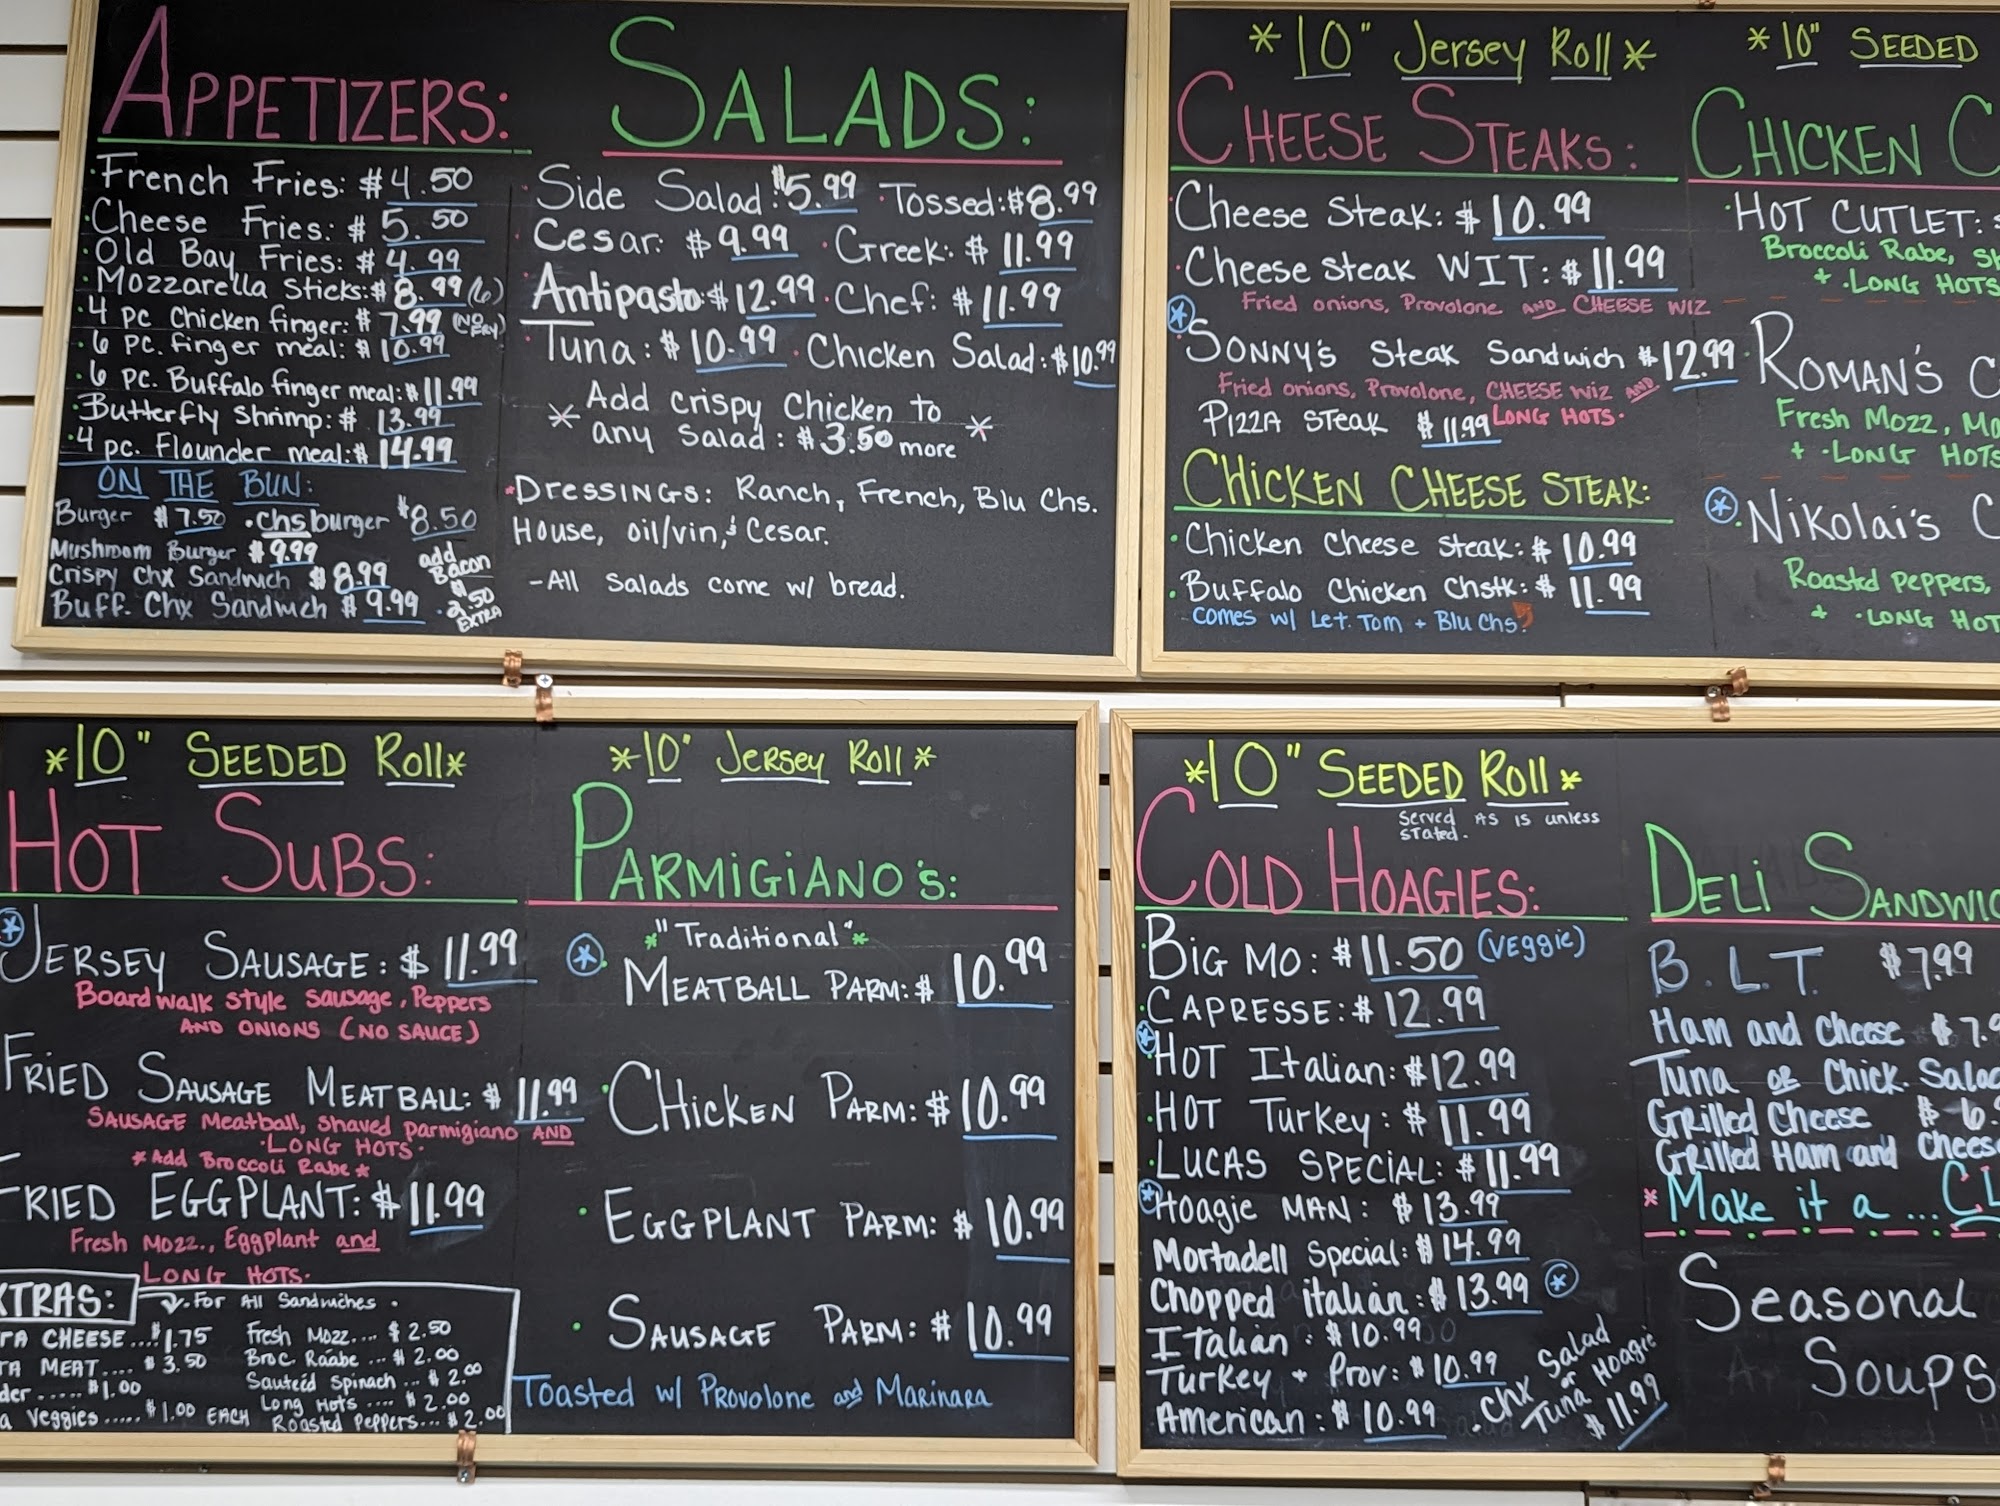 APPETIZERS:
·French Fries: $4.50
·Cheese Fries: $5.50
·Old Bay Fries: $4.99
·Mozzarella Sticks: $8.99 (6)
·4 pc Chicken finger: $7.99 (NO FRY)
·6 pc. finger meal: $10.99
·6 pc. Buffalo finger meal: $11.99
·Butterfly Shrimp: $13.99
·4 pc. Flounder meal: $14.99
ON THE BUN:
Burger $7.50 ·chsburger $8.50
Mushroom Burger $9.99
Crispy Chx Sandwich $8.99
Buff. Chx Sandwich $9.99
add
Bacon
$
2.50
EXTRA
SALADS:
·Side Salad: $5.99 ·Tossed: $8.99
·Cesar: $9.99 ·Greek: $11.99
Antipasto: $12.99 ·Chef: $11.99
·Tuna: $10.99 ·Chicken Salad: $10.99
* Add crispy Chicken to
any Salad: $3.50 more *
*Dressings: Ranch, French, Blu Chs.
House, oil/vin, & Cesar.
-All Salads come w/ bread.
*10" Jersey Roll*
CHEESE STEAKS:
·Cheese Steak: $10.99
·Cheese Steak WIT: $11.99
Fried onions, Provolone AND CHEESE WIZ
SONNY'S Steak Sandwich $12.99
Fried onions, Provolone, CHEESE WIZ AND
LONG HOTS·
PIZZA STEAK $11.99
CHICKEN CHEESE STEAK:
·Chicken Cheese Steak: $10.99
·Buffalo Chicken Chstk: $11.99
comes w/ Let. Tom + Blu Chs.
*10" SEEDED
CHICKEN C
·HOT CUTLET:
Broccoli Rabe, Sh
+ ·LONG HOTS
·ROMAN'S C
Fresh Mozz, Mo
+ ·LONG HOTS
·NIKOLAI'S C
Roastd peppers,
+ ·LONG HOT
*10" SEEDED Roll*
HOT SUBS:
JERSEY SAUSAGE: $11.99
Boardwalk style sausage, Peppers
AND ONIONS (NO SAUCE)
FRIED SAUSAGE MEATBALL: $11.99
SAUSAGE Meatball, shaved parmigiano AND
·LONG HOTS·
*Add Broccoli Rabe*
FRIED EGGPLANT: $11.99
Fresh Mozz., Eggplant and
LONG HOTS·
XTRAS: For All Sandwiches.
RA CHEESE...$1.75
RA MEAT....$3.50
der.....$1.00
a Veggies.....$1.00 EACH
Fresh Mozz.... $2.50
Broc. Raabe ... $2.00
Sauteéd Spinach ... $2.00
Long Hots .... $2.00
Roasted Peppers... $2.00
*10" Jersey Roll*
PARMIGIANO'S:
*"Traditional"*
·MEATBALL PARM: $10.99
·CHICKEN PARM: $10.99
·EGGPLANT PARM: $10.99
·SAUSAGE PARM: $10.99
Toasted w/ Provolone and Marinara
*10" SEEDED Roll*
Served AS IS unless
stated.
COLD HOAGIES:
·BIG MO: $11.50 (veggie)
·CAPRESSE: $12.99
HOT Italian: $12.99
·HOT Turkey: $11.99
·LUCAS SPECIAL: $11.99
Hoagie MAN: $13.99
Mortadell Special: $14.99
Chopped italian: $13.99
Italian: $10.99
Turkey + Prov: $10.99
American: $10.99
·Chx Salad
or
Tuna Hoagie
$11.99
DELI SANDWIC
B.L.T. $7.99
Ham and Cheese $7.9
Tuna or Chick. Salad
Grilled Cheese $6.
Grilled Ham and Cheese
*Make it a ...CL
Seasonal
Soups